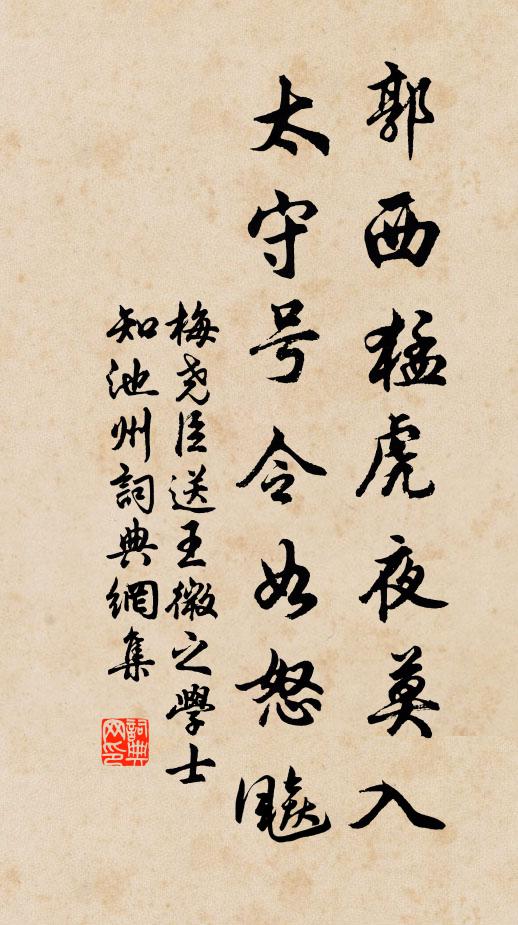 郭西猛虎夜莫入
太守号令如怒飚
梅尧臣送王微之學士
知池州詞典網集
詞典
网印